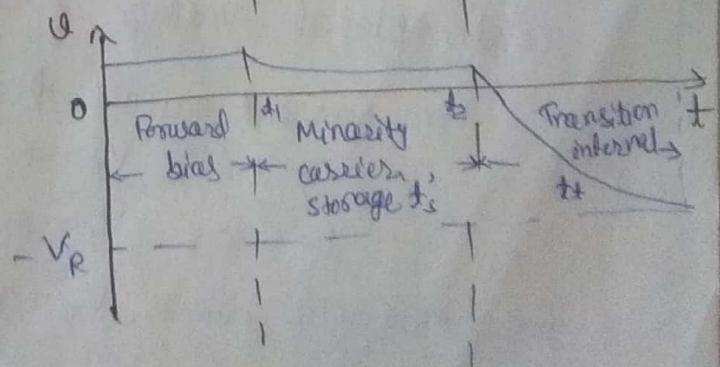 v
0
Forward
bias
t1
Minority
carrier
storage ts
t2
Transition
interval
tt
t
- VR